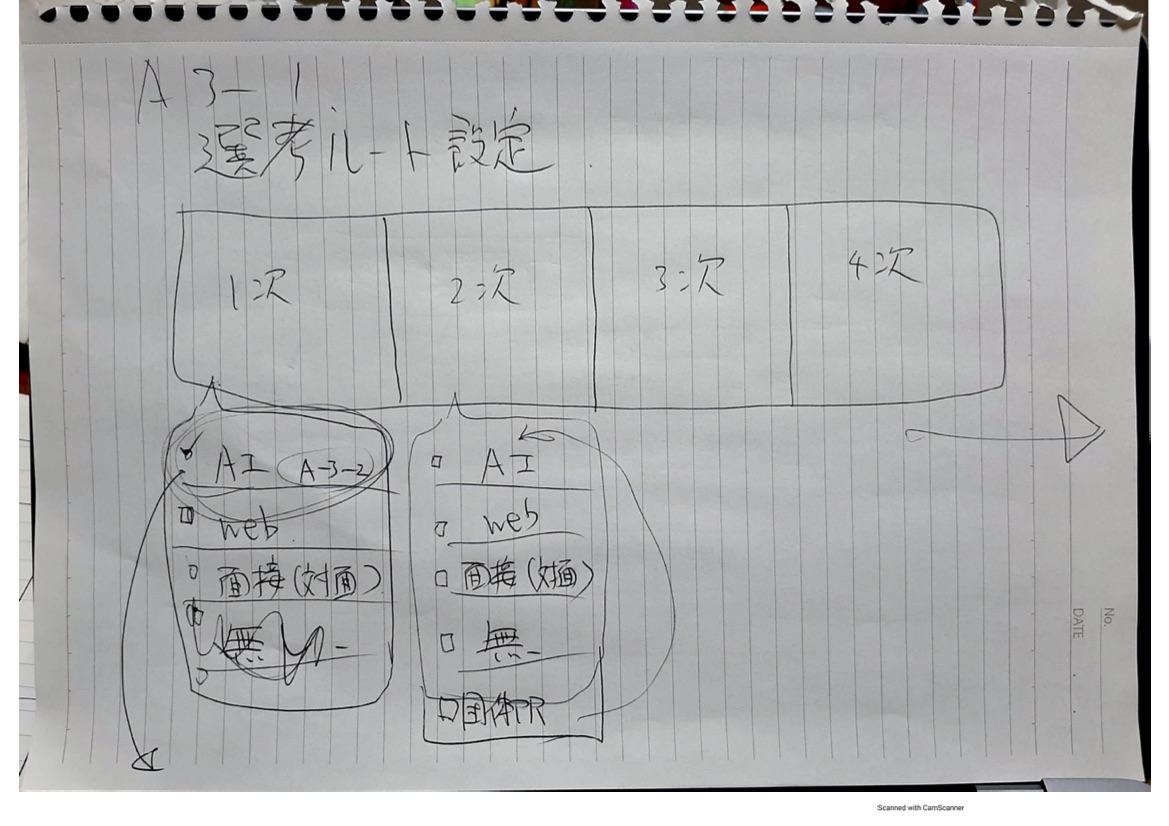 A 3-1
選考ルート設定
1次 2次 3次 4次
AI A-3-2
web
面接(対面)
無
AI
web
面接(対面)
無
団体PR
No.
DATE
Scanned with CamScanner